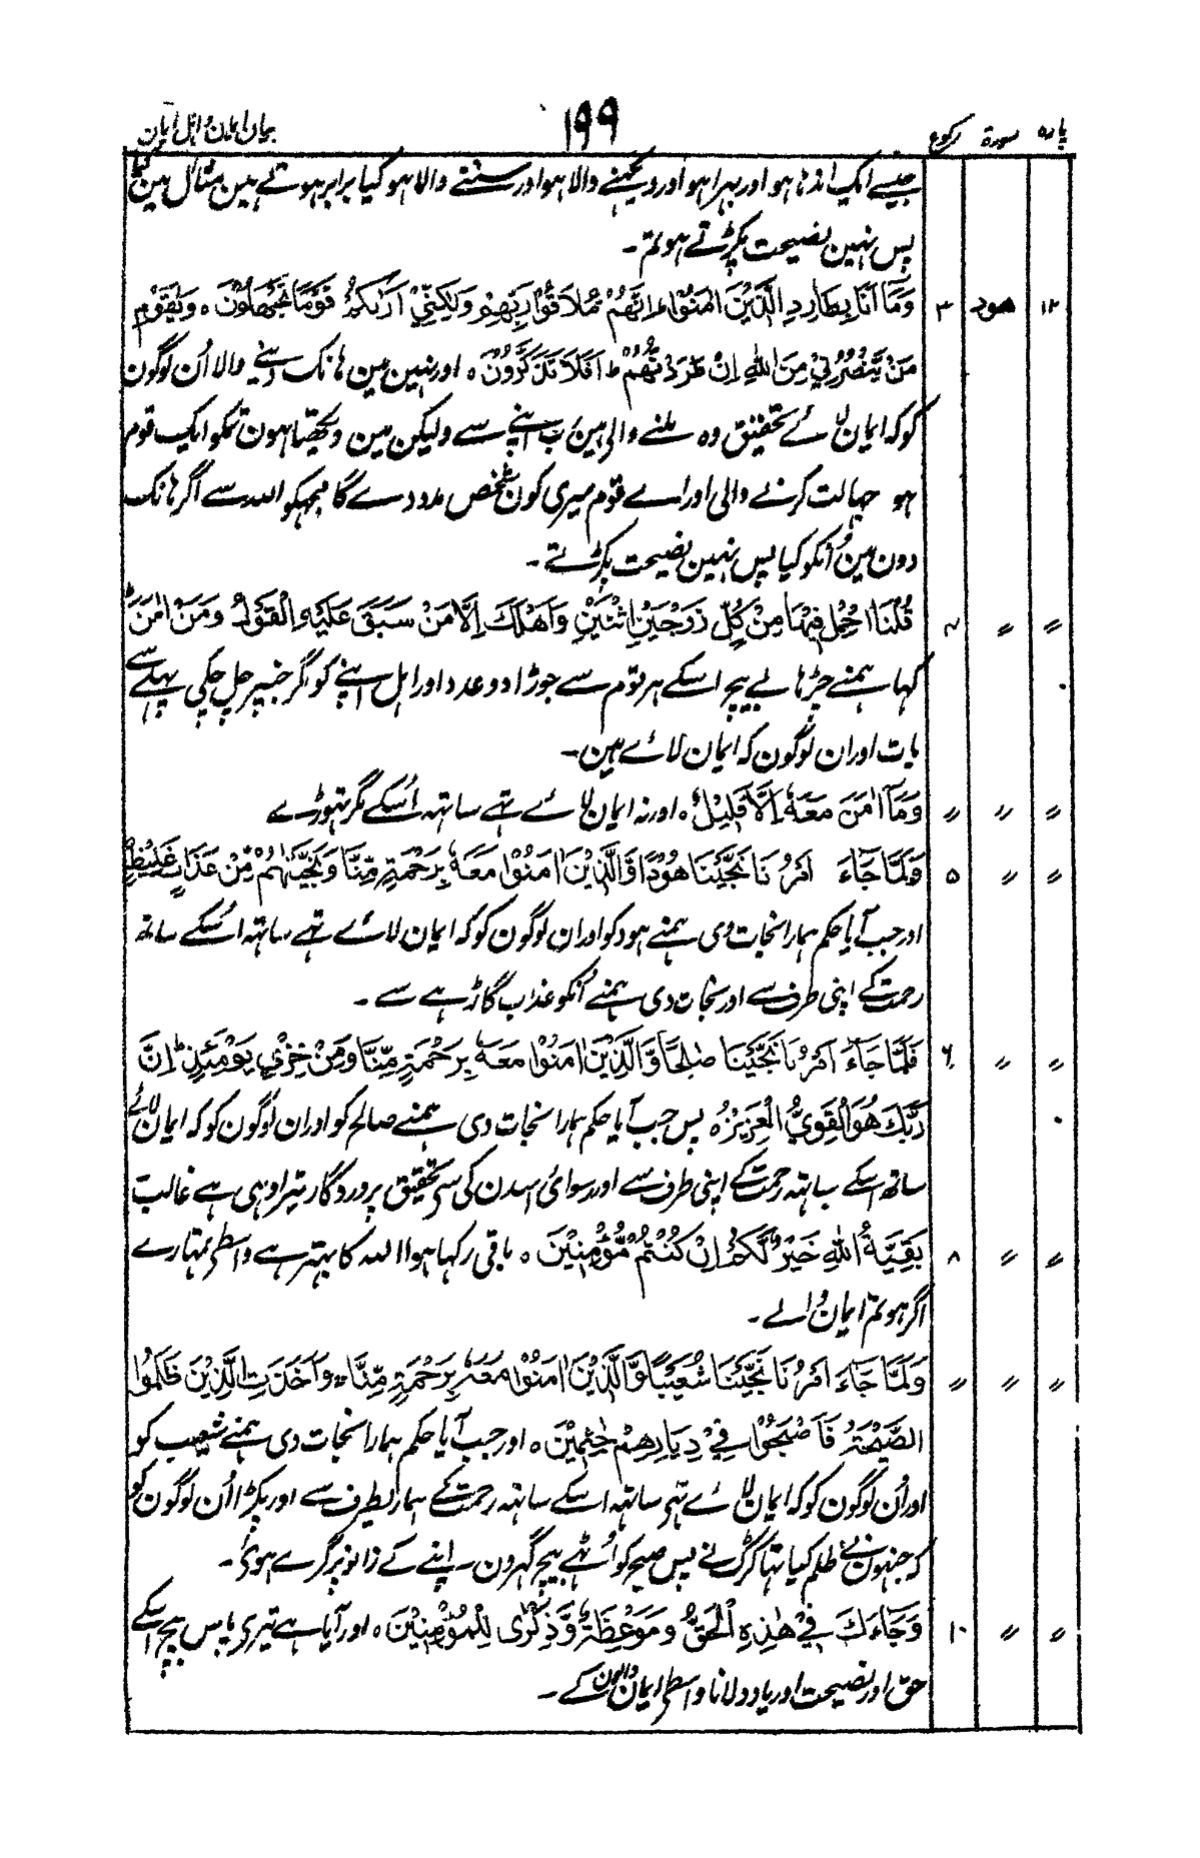 پارہ سورۃ رکوع ۱۹۹ بیان ایمان و اہل ایمان
جیسے ایک اندہا ہو اور بہرا ہو اور دیکہنے والا ہو اور سننے والا ہو کیا برابر ہوتے ہین مثال مین کیا
پس نہین نصیحت پکڑتے ہو تم ۔
۱۲ ھود ۳ وَمَآ اَنَا بِطَارِدِ الَّذِيْنَ اٰمَنُوْا ؕ اِنَّهُمْ مُّلَاقُوْا رَبِّهِمْ وَلٰكِنِّيْٓ اَرٰىكُمْ قَوْمًا تَجْهَلُوْنَ ہ وَيٰقَوْمِ
مَنْ يَّنْصُرُنِيْ مِنَ اللّٰهِ اِنْ طَرَدْتُّهُمْ ؕ اَفَلَا تَذَكَّرُوْنَ ہ اور نہین مین ہانک دینے والا اُن لوگون
کو کہ ایمان لائے تحقیق وہ ملنے والے ہین رب اپنے سے ولیکن مین دیکھتا ہون تمکو ایک قوم
ہو جہالت کرنے والی اور اے قوم میری کون شخص مدد دے گا مجہکو اللہ سے اگر ہانک
دون مین اُنکو کیا پس نہین نصیحت پکڑتے ۔
〃 〃 ۴ قُلْنَا احْمِلْ فِيْهَا مِنْ كُلٍّ زَوْجَيْنِ اثْنَيْنِ وَاَهْلَكَ اِلَّا مَنْ سَبَقَ عَلَيْهِ الْقَوْلُ وَمَنْ اٰمَنَ ؕ
کہا ہمنے چڑہا لے بیچ اسکے ہر قوم سے جوڑا دو عدد اور اہل اپنے کو مگر جنپر چل چکی پہلے سے
بات اور ان لوگون کہ ایمان لائے ہین ۔
〃 〃 〃 وَمَآ اٰمَنَ مَعَهٗٓ اِلَّا قَلِيْلٌ ہ اور نہ ایمان لائے تہے ساتہہ اُسکے مگر تہوڑے
〃 〃 ۵ وَلَمَّا جَآءَ اَمْرُنَا نَجَّيْنَا هُوْدًا وَّالَّذِيْنَ اٰمَنُوْا مَعَهٗ بِرَحْمَةٍ مِّنَّا وَنَجَّيْنٰهُمْ مِّنْ عَذَابٍ غَلِيْظٍ
اور جب آیا حکم ہمارا نجات دی ہمنے ہود کو اور ان لوگون کو کہ ایمان لائے تہے ساتہہ اُسکے ساتھ
رحمت کے اپنی طرف سے اور نجات دی ہمنے اُنکو عذاب گاڑہے سے ۔
〃 〃 ۶ فَلَمَّا جَآءَ اَمْرُنَا نَجَّيْنَا صٰلِحًا وَّالَّذِيْنَ اٰمَنُوْا مَعَهٗ بِرَحْمَةٍ مِّنَّا وَمِنْ خِزْيِ يَوْمِئِذٍ ؕ اِنَّ
رَبَّكَ هُوَ الْقَوِيُّ الْعَزِيْزُ ہ پس جب آیا حکم ہمارا نجات دی ہمنے صالح کو اور ان لوگون کو کہ ایمان لائے
ساتھ اسکے ساتہہ رحمت کے اپنی طرف سے اور رسوائی اسدن کی سے تحقیق پروردگار تیرا وہی ہے غالب
〃 〃 ۸ بَقِيَّةُ اللّٰهِ خَيْرٌ لَّكُمْ اِنْ كُنْتُمْ مُّؤْمِنِيْنَ ہ باقی رکہا ہوا اللہ کا بہتر ہے واسطے تمہارے
اگر ہو تم ایمان والے ۔
〃 〃 〃 وَلَمَّا جَآءَ اَمْرُنَا نَجَّيْنَا شُعَيْبًا وَّالَّذِيْنَ اٰمَنُوْا مَعَهٗ بِرَحْمَةٍ مِّنَّا ہ وَاَخَذَتِ الَّذِيْنَ ظَلَمُوا
الصَّيْحَةُ فَاَصْبَحُوْا فِيْ دِيَارِهِمْ جٰثِمِيْنَ ہ اور جب آیا حکم ہمارا نجات دی ہمنے شعیب کو
اور اُن لوگون کو کہ ایمان لائے تہے ساتہہ اسکے ساتہہ رحمت کے ہمارے طرف سے اور پکڑا اُن لوگون کو
کہ جنہون نے ظلم کیا تہا کڑک نے پس صبح کو اُٹہے بیچ گہرون ۔ اپنے کے زانو پر گرے ہوئے ۔
〃 〃 ۱۰ وَجَآءَكَ فِيْ هٰذِهِ الْحَقُّ وَمَوْعِظَةٌ وَّذِكْرٰى لِلْمُؤْمِنِيْنَ ہ اور آیا ہے تیری پاس بیچ اسکے
حق اور نصیحت اور یاد دلانا واسطے ایمان والون کے ۔